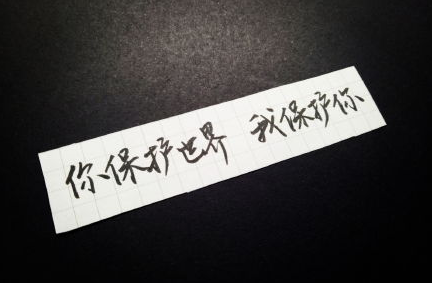 你保护世界 我保护你